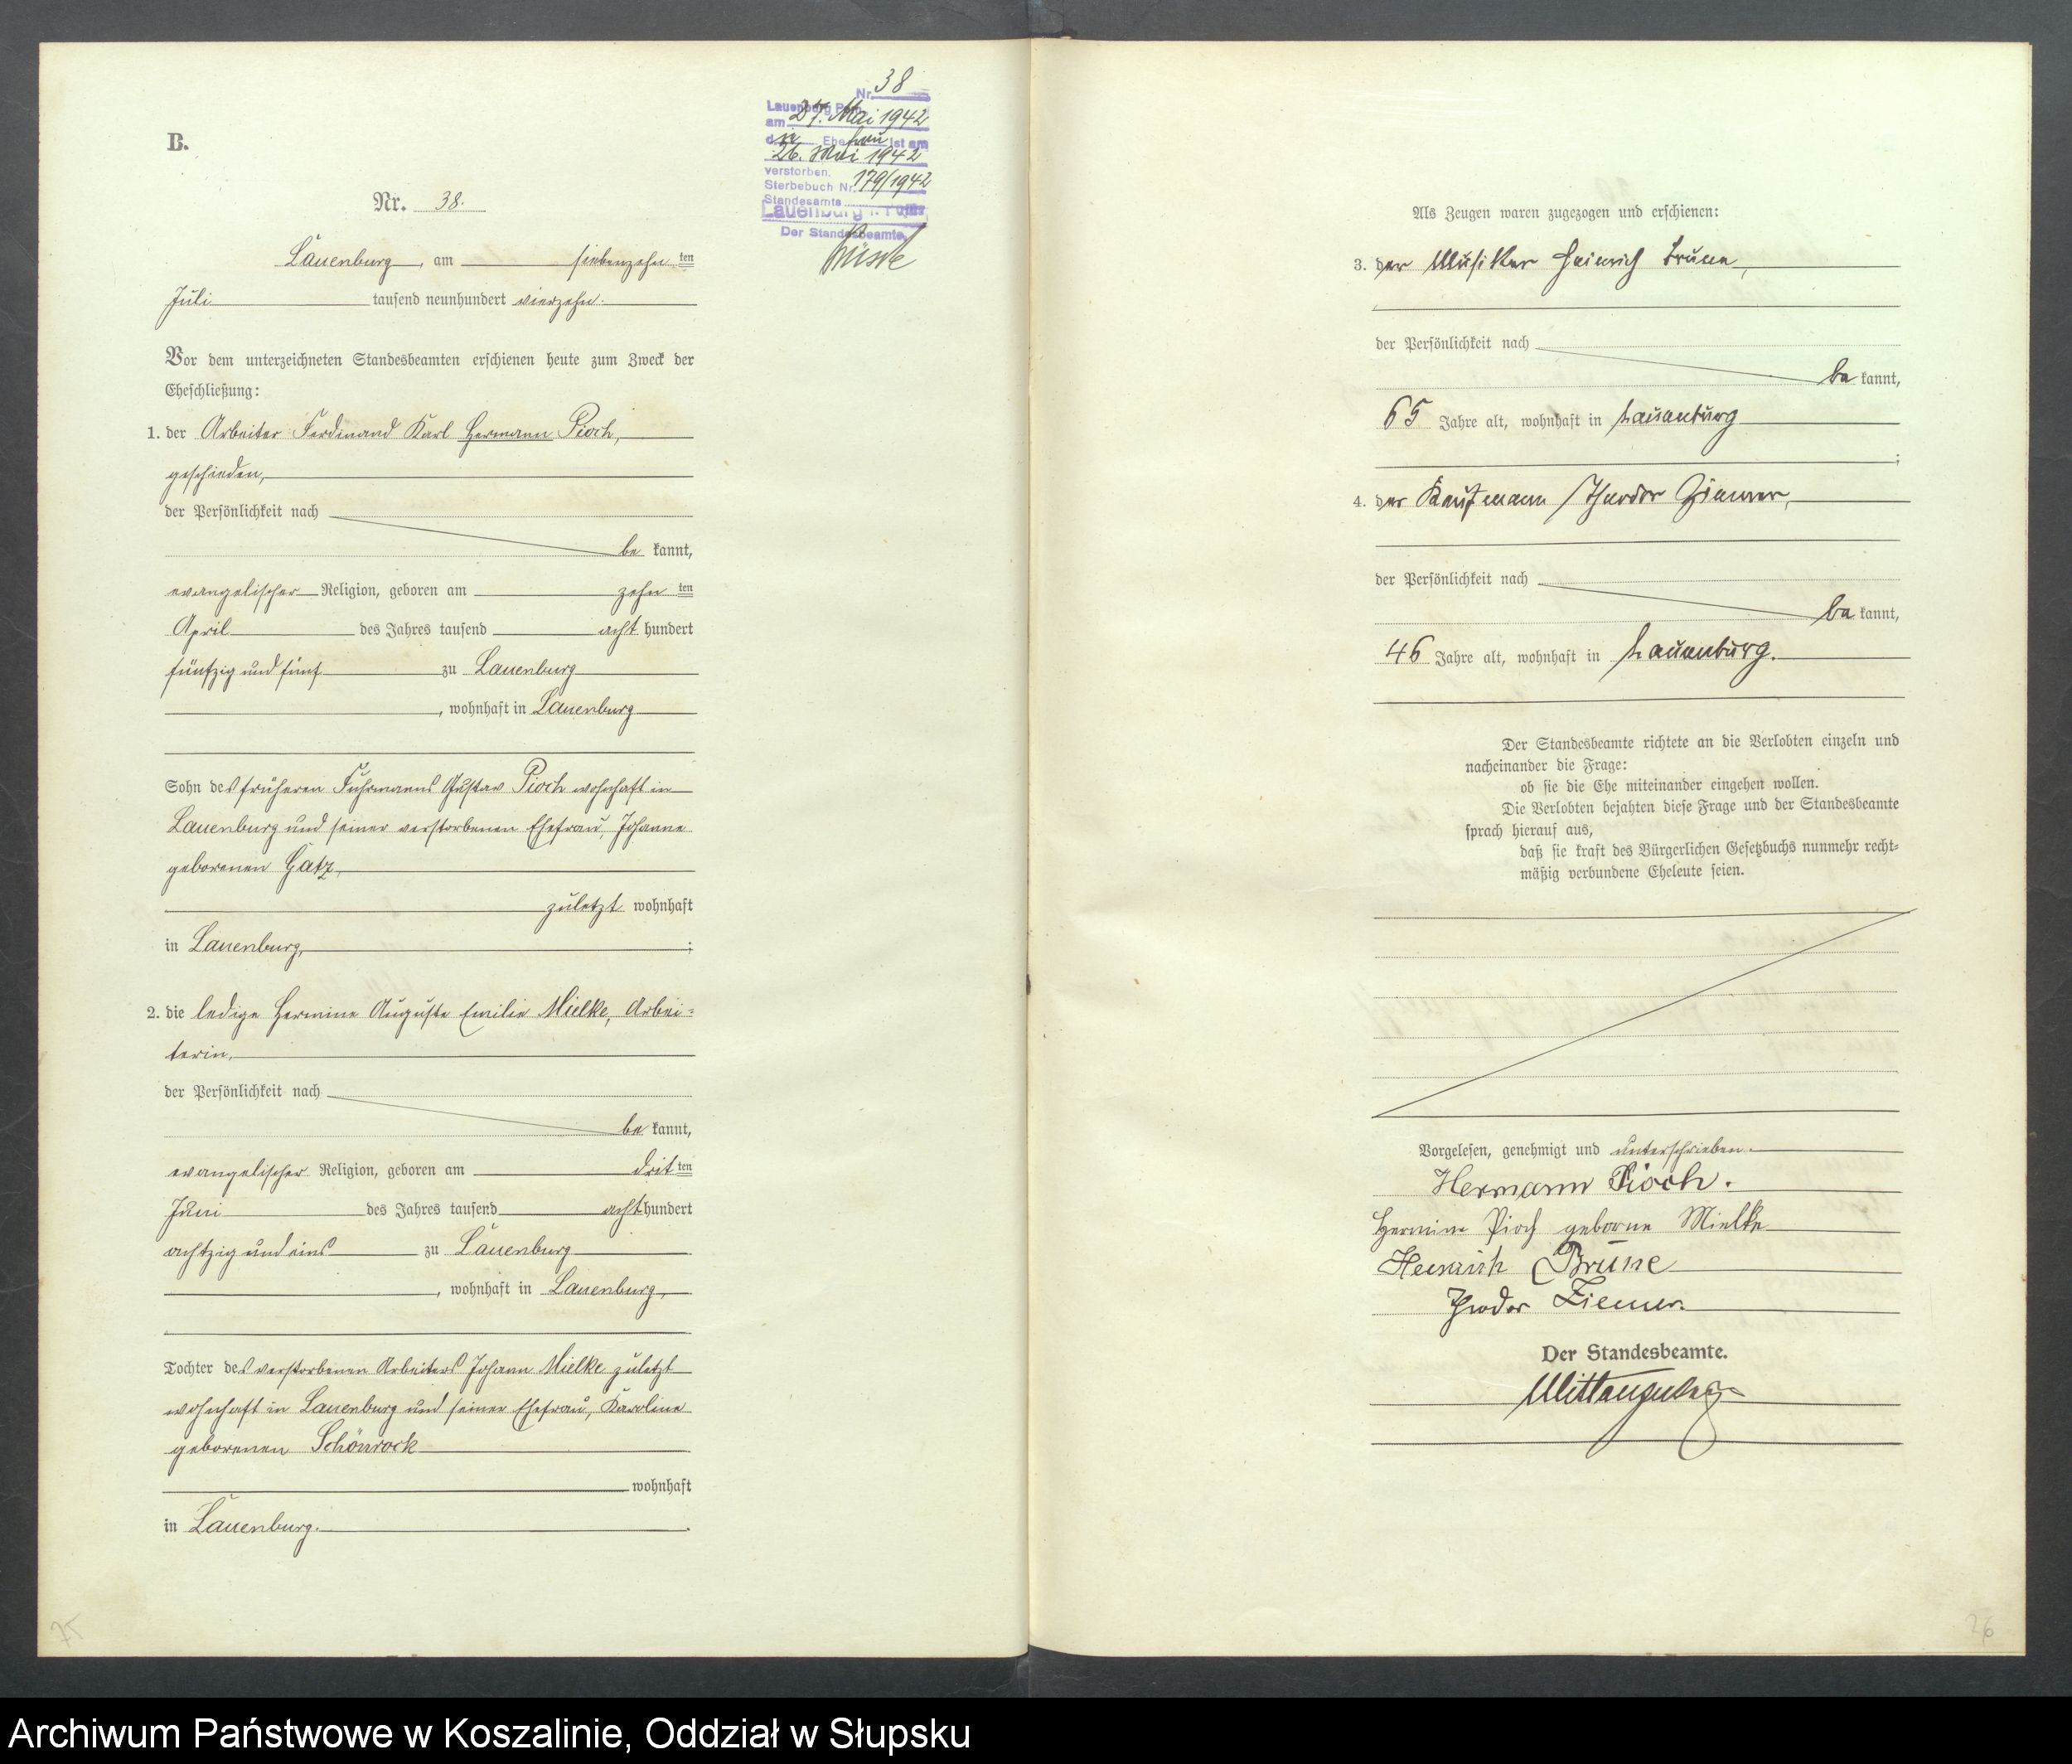 B.
Nr. 38.
Lauenburg, am siebenzehnten
Juli tausend neunhundert vierzehn.
Vor dem unterzeichneten Standesbeamten erschienen heute zum Zweck der
Eheschließung:
1. der Arbeiter Ferdinand Karl Hermann Pioch,
geschieden,
der Persönlichkeit nach
bekannt,
evangelischer Religion, geboren am zehnten
April des Jahres tausend achthundert
fünfzig und fünf zu Lauenburg
, wohnhaft in Lauenburg
Sohn des früheren Fuhrmanns Gustav Pioch wohnhaft in
Lauenburg und seiner verstorbenen Ehefrau, Johanne
geborenen Gatz,
zuletzt wohnhaft
in Lauenburg, ;
2. die ledige Hermine Auguste Emilie Mielke, Arbei-
terin,
der Persönlichkeit nach
bekannt,
evangelischer Religion, geboren am dritten
Juni des Jahres tausend achthundert
achtzig und eins zu Lauenburg
, wohnhaft in Lauenburg,
Tochter des verstorbenen Arbeiters Johann Mielke zuletzt
wohnhaft in Lauenburg und seiner Ehefrau, Karoline
geborenen Schönrock
wohnhaft
in Lauenburg.
Nr. 38
Lauenburg Pom.
am 27. Mai 1942
die Ehefrau ist am
26. Mai 1942
verstorben.
Sterbebuch Nr. 179/1942
Standesamts
Lauenburg i. Pom.
Der Standesbeamte
Als Zeugen waren zugezogen und erschienen:
3. der Musiker Heinrich Brune,
der Persönlichkeit nach
bekannt,
65 Jahre alt, wohnhaft in Lauenburg
;
4. der Kaufmann Theodor Ziemer,
der Persönlichkeit nach
bekannt,
46 Jahre alt, wohnhaft in Lauenburg.
Der Standesbeamte richtete an die Verlobten einzeln und
nacheinander die Frage:
ob sie die Ehe miteinander eingehen wollen.
Die Verlobten bejahten diese Frage und der Standesbeamte
sprach hierauf aus,
daß sie kraft des Bürgerlichen Gesetzbuchs nunmehr recht-
mäßig verbundene Eheleute seien.
Vorgelesen, genehmigt und unterschrieben.
Hermann Pioch.
Hermine Pioch geborne Mielke
Heinrich Brune
Theodor Ziemer
Der Standesbeamte.
26
Archiwum Państwowe w Koszalinie, Oddział w Słupsku